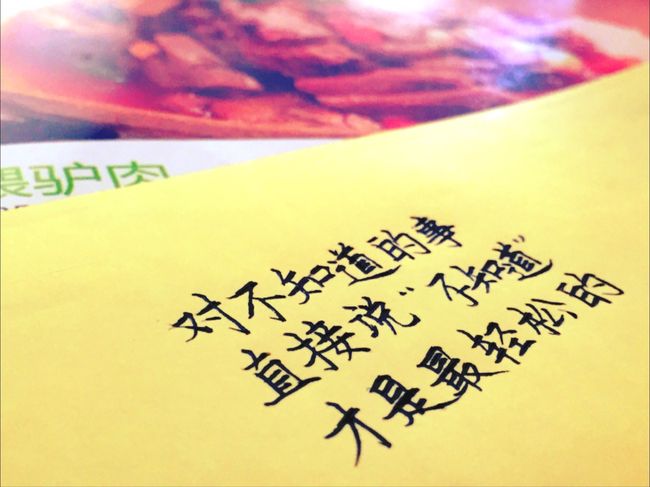 驴肉
对不知道的事
直接说“不知道”
才是最轻松的